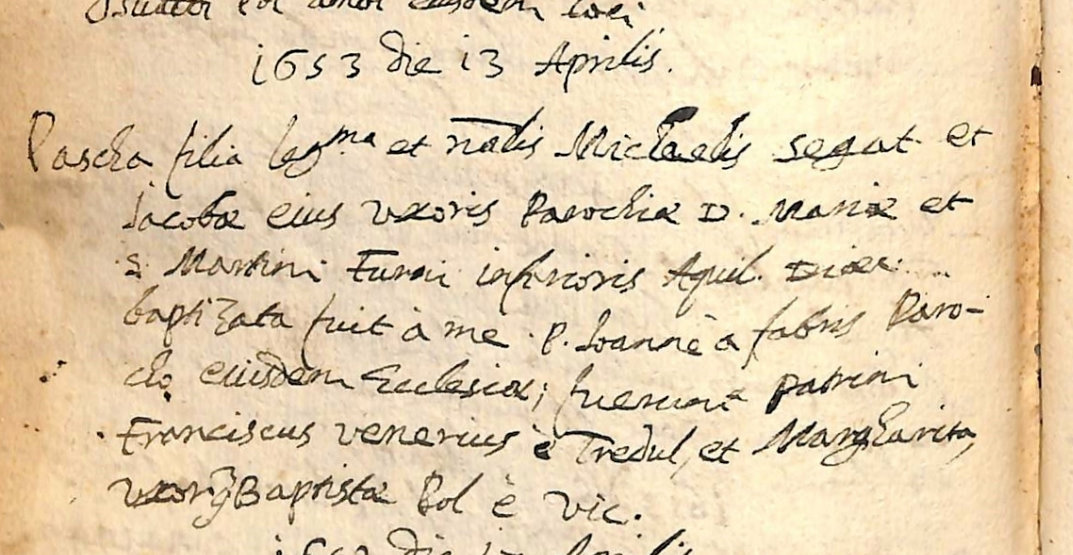 Pol eiusdem loci
1653 die 13 Aprilis.
Pascha filia legma et nālis Michaelis segat et
Jacobæ eius uxoris Parochiæ D. Mariæ et
S. Martini Furni inferioris Aquil. Diœc.
baptizata fuit à me P. Joanne à fabris Paro-
cho eiusdem Ecclesiæ; fuerunt Patrini
Franciscus venerius è Tredul, et Margharita,
uxor Baptistæ Pol è vic.
die Aprilis